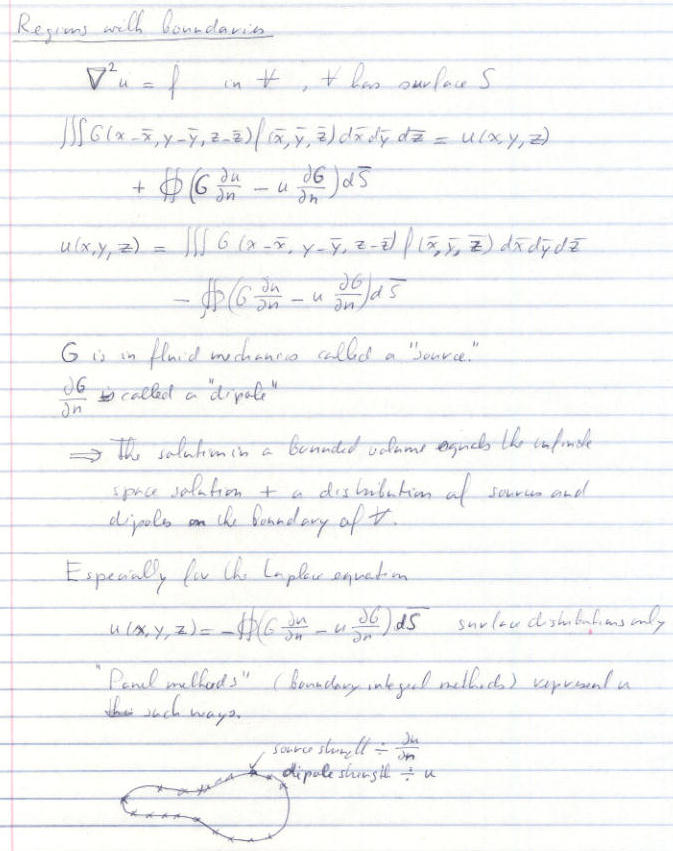 Regions with boundaries
∇²u = f in V, V has surface S
∭G(x-x̄, y-ȳ, z-z̄) f(x̄, ȳ, z̄) dx̄ dȳ dz̄ = u(x, y, z)
+ ∯(G ∂u/∂n - u ∂G/∂n) dS̄
u(x, y, z) = ∭ G(x-x̄, y-ȳ, z-z̄) f(x̄, ȳ, z̄) dx̄ dȳ dz̄
- ∯(G ∂u/∂n - u ∂G/∂n) dS̄
G is in fluid mechanics called a "source."
∂G/∂n is called a "dipole"
⇒ The solution in a bounded volume equals the infinite
space solution + a distribution of sources and
dipoles on the boundary of V.
Especially for the Laplace equation
u(x, y, z) = -∯(G ∂u/∂n - u ∂G/∂n) dS̄ surface distributions only
"Panel methods" (boundary integral methods) represent u
such ways.
source strength ÷ ∂u/∂n
dipole strength ÷ u